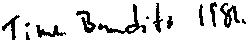 Time Bandits 1981.